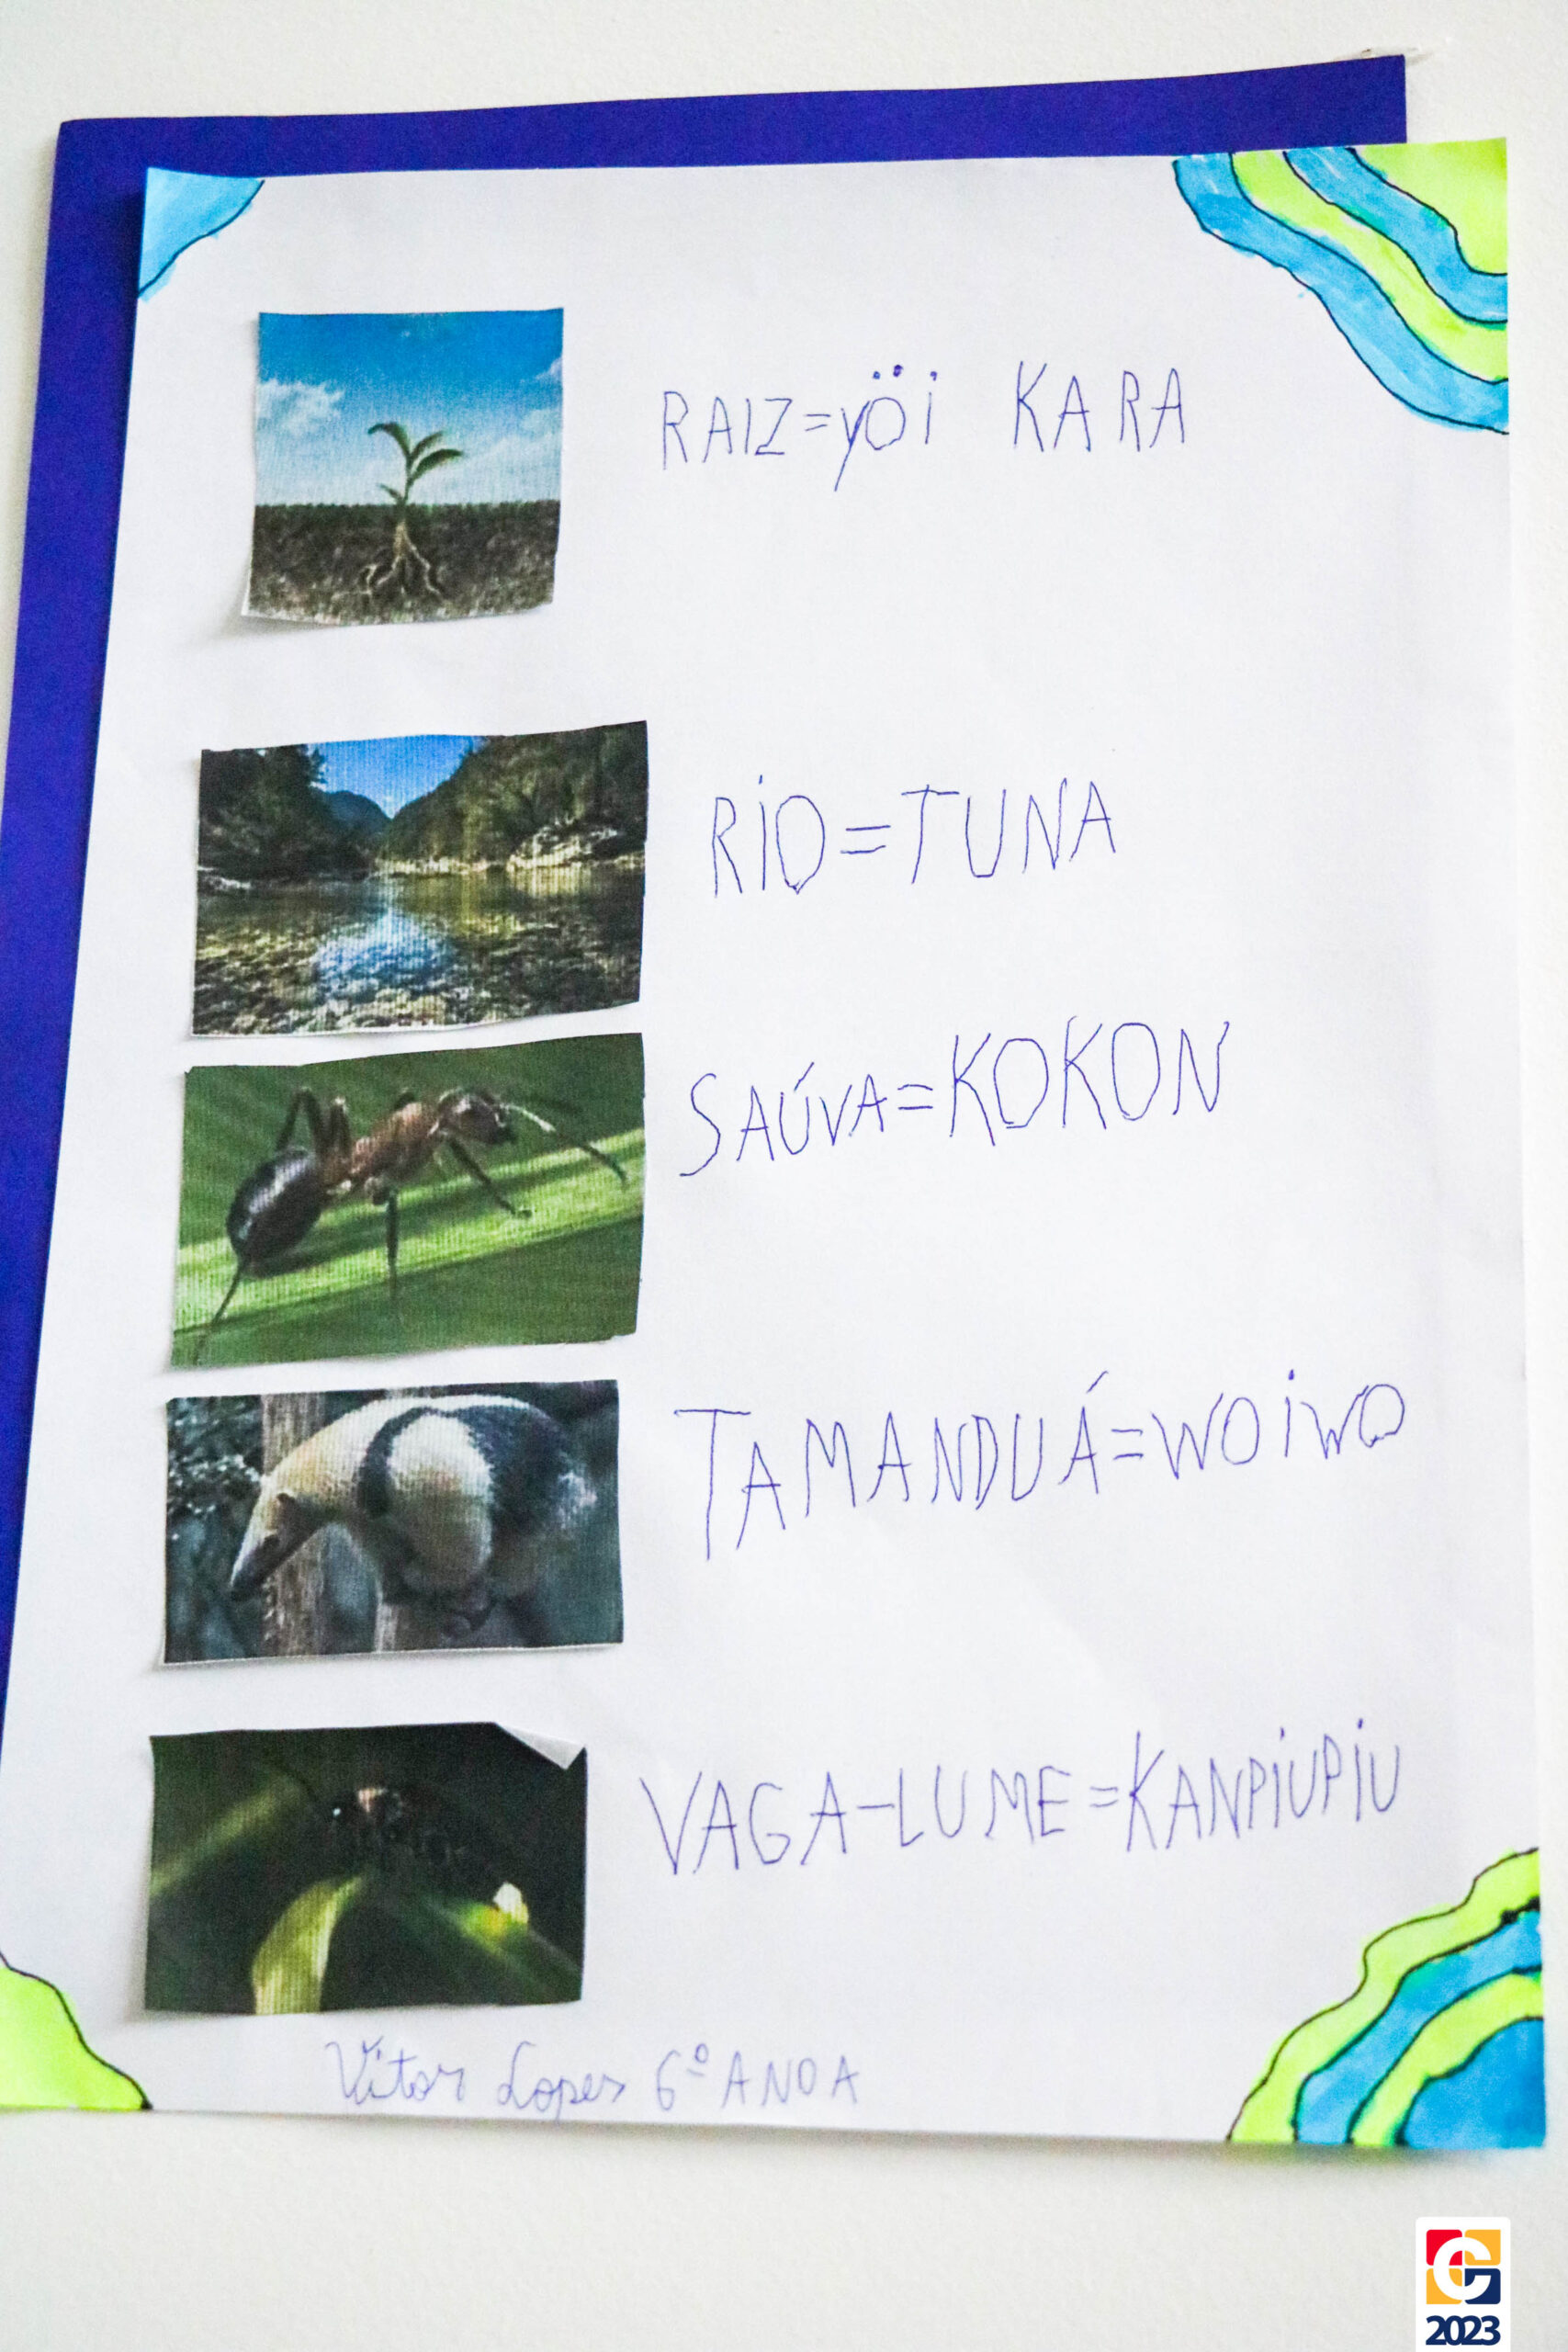 RAIZ=yöi KARA
RIO=TUNA
SAÚVA=KOKON
TAMANDUÁ=WOIWO
VAGA-LUME=KANPIUPIU
Vitor Lopes 6º ANO A
2023